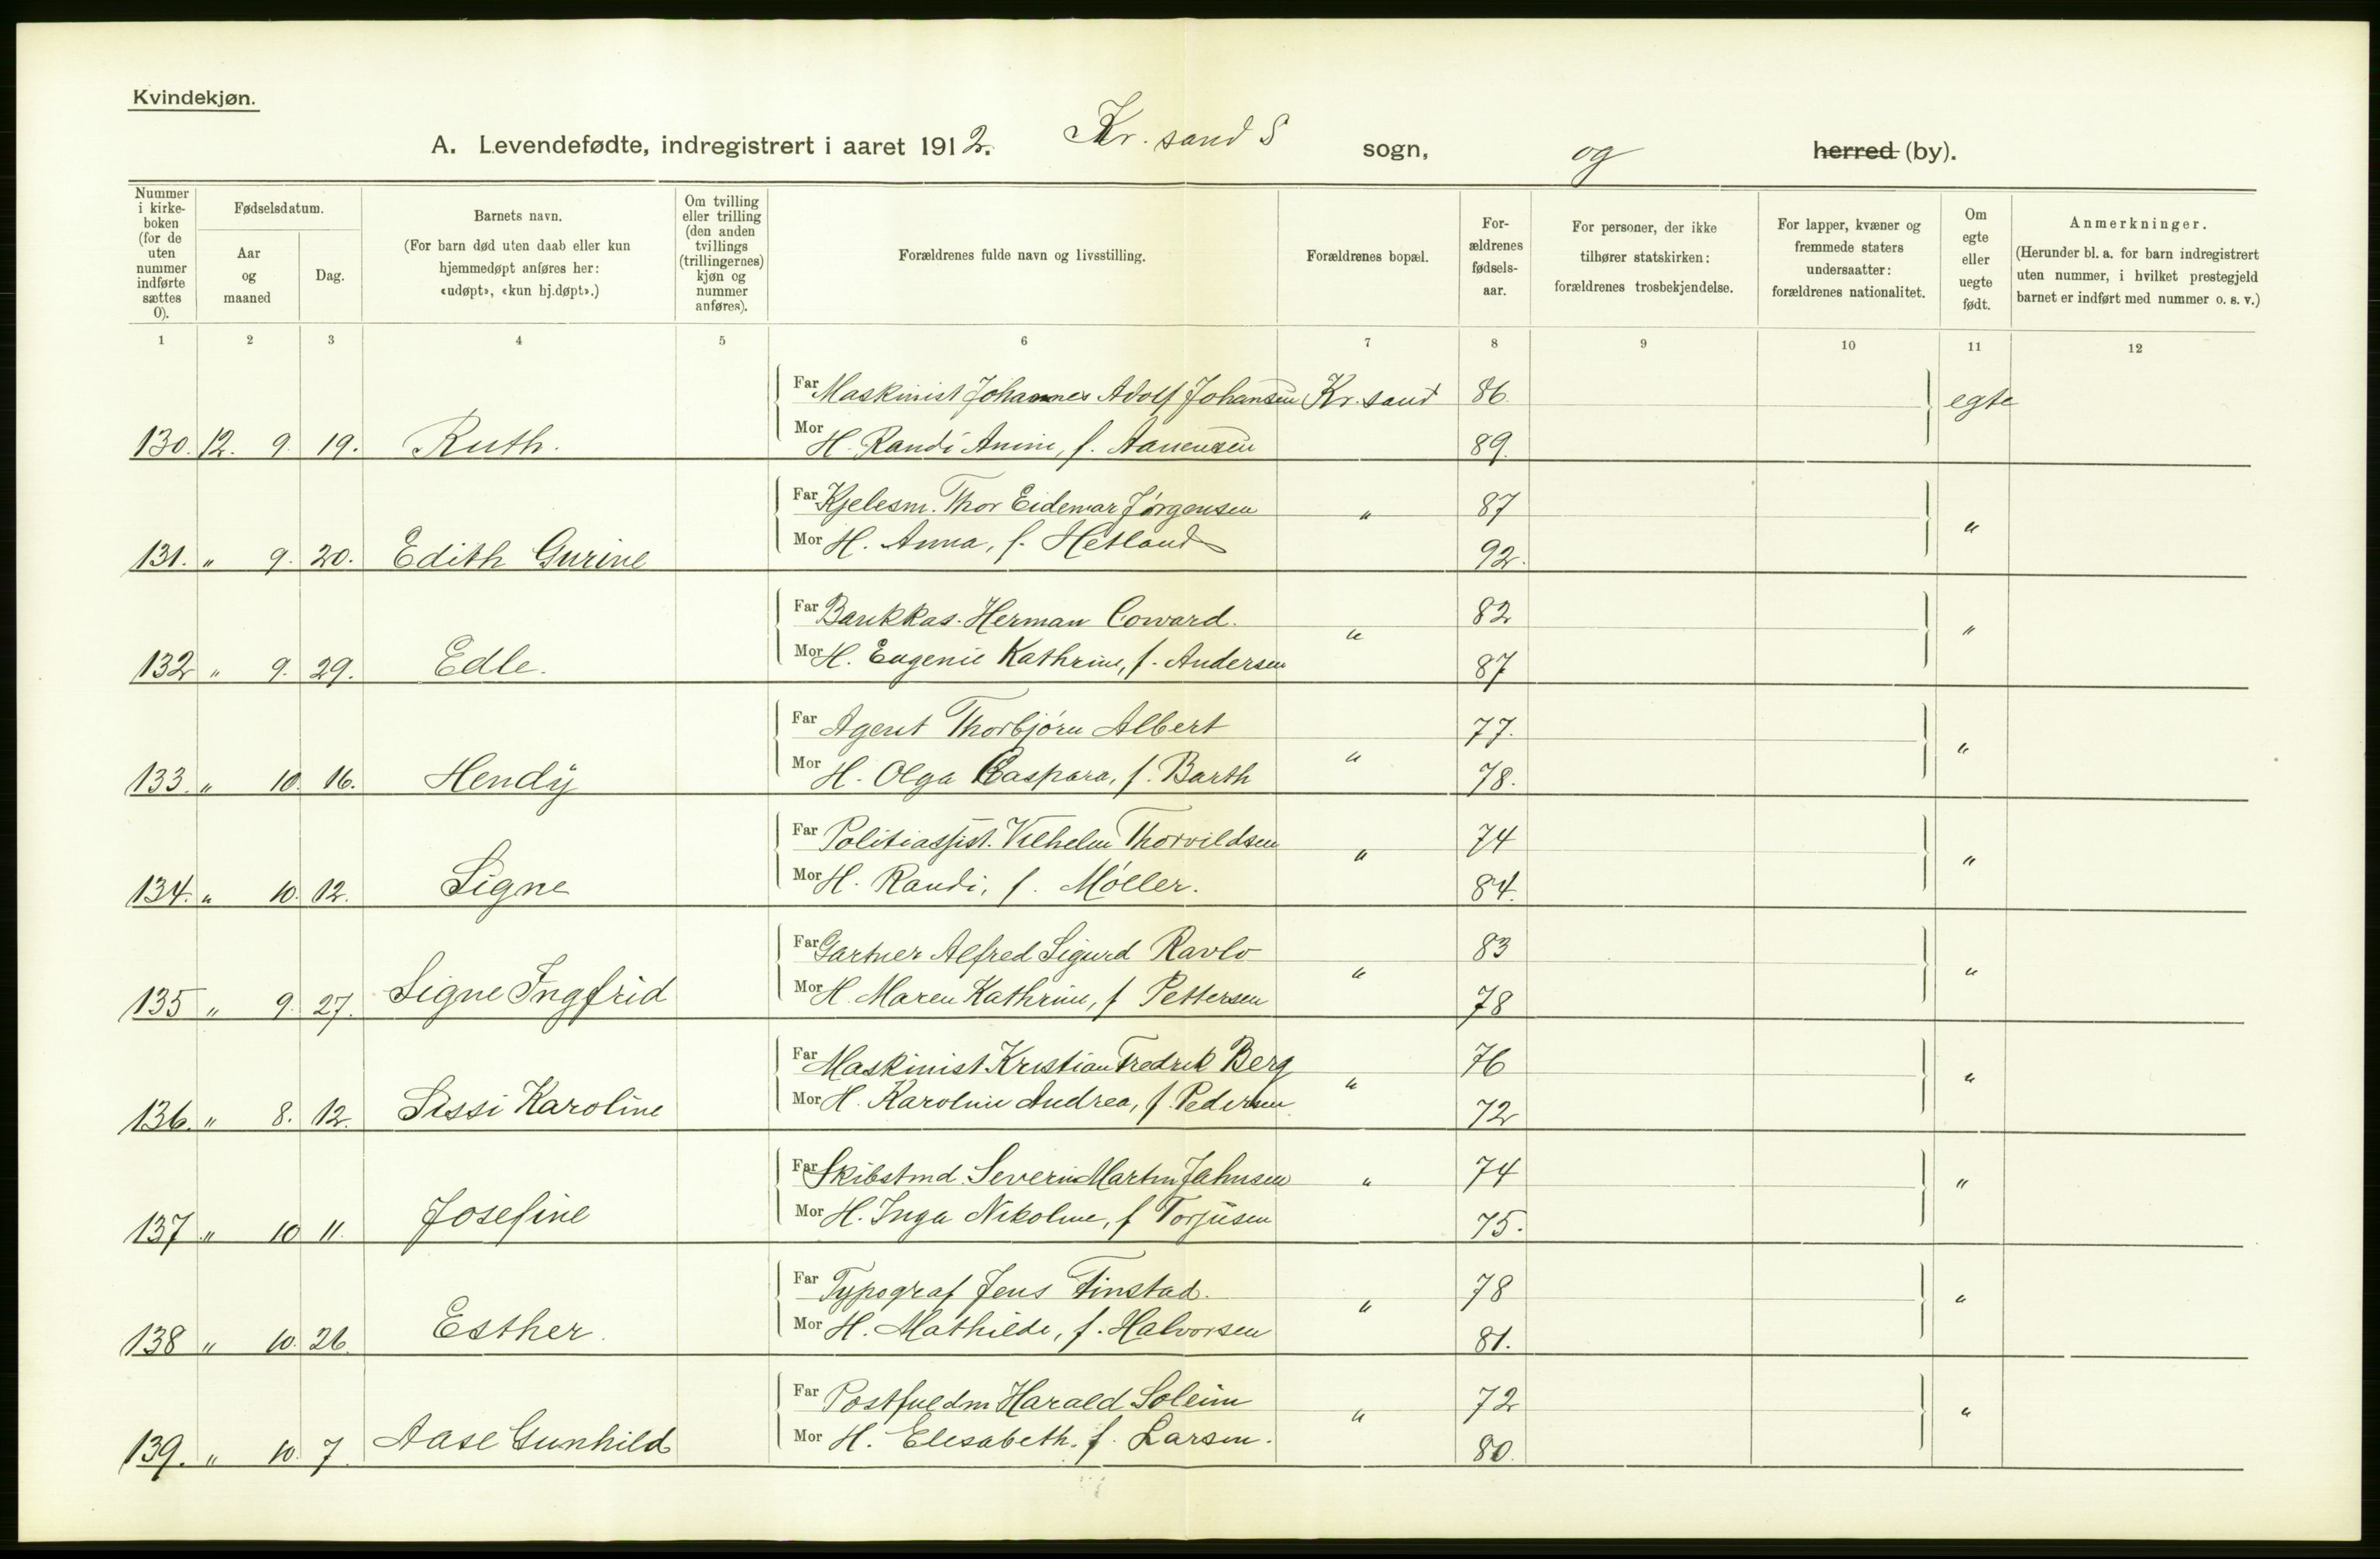 Kvindekjøn.
A. Levendefødte, indregistrert i aaret 1912. Kr.sand S sogn, og herred (by).
Nummer i kirke-boken (for de uten nummer indførte sættes 0).
Fødselsdatum.
Aar og maaned
Dag.
Barnets navn.
(For barn død uten daab eller kun hjemmedøpt anføres her: «udøpt», «kun hj.døpt».)
Om tvilling eller trilling (den anden tvillings (trillingernes) kjøn og nummer anføres).
Forældrenes fulde navn og livsstilling.
Forældrenes bopæl.
For-ældrenes fødsels-aar.
For personer, der ikke tilhører statskirken: forældrenes trosbekjendelse.
For lapper, kvæner og fremmede staters undersaatter: forældrenes nationalitet.
Om egte eller uegte født.
Anmerkninger.
(Herunder bl. a. for barn indregistrert uten nummer, i hvilket prestegjeld barnet er indført med nummer o. s. v.)
1 2 3 4 5 6 7 8 9 10 11 12
Far Maskinist Johannes Adolf Johansen Kr.sand 86 egte
130. 12. 9. 19. Ruth. Mor H. Randi Anine, f. Aanensen 89.
Far Kjelesm. Thor Eidemar Jørgensen " 87 "
131. " 9. 20. Edith Gurine Mor H. Anna, f. Hetland 92.
Far Bankkas. Herman Coward. " 82 "
132 " 9. 29. Edle. Mor H. Eugenie Kathrine, f. Andersen 87
Far Agent Thorbjørn Albert " 77. "
133. " 10. 16. Hendy Mor H. Olga Caspara, f. Barth 78.
Far Politiassist. Vilhelm Thorvildsen " 74 "
134. " 10. 12. Signe Mor H. Randi, f. Møller. 84.
Far Gartner Alfred Sigurd Ravlo " 83 "
135 " 9. 27. Signe Ingfrid Mor H. Maren Kathrine, f Pettersen 78
Far Maskinist Kristian Fredrik Berg " 76 "
136. " 8. 12. Sissi Karoline Mor H. Karoline Andrea, f. Pedersen 72
Far Skibstmd. Severin Martin Jahnsen " 74 "
137 " 10 11. Josefine Mor H. Inga Nikoline, f Torjusen 75.
Far Typograf Jens Finstad. " 78 "
138 " 10. 26. Esther. Mor H. Mathilde, f. Halvorsen 81.
Far Postfuldm Harald Soleim " 72 "
139. " 10. 7. Aase Gunhild Mor H. Elisabeth. f. Larsen. 80.